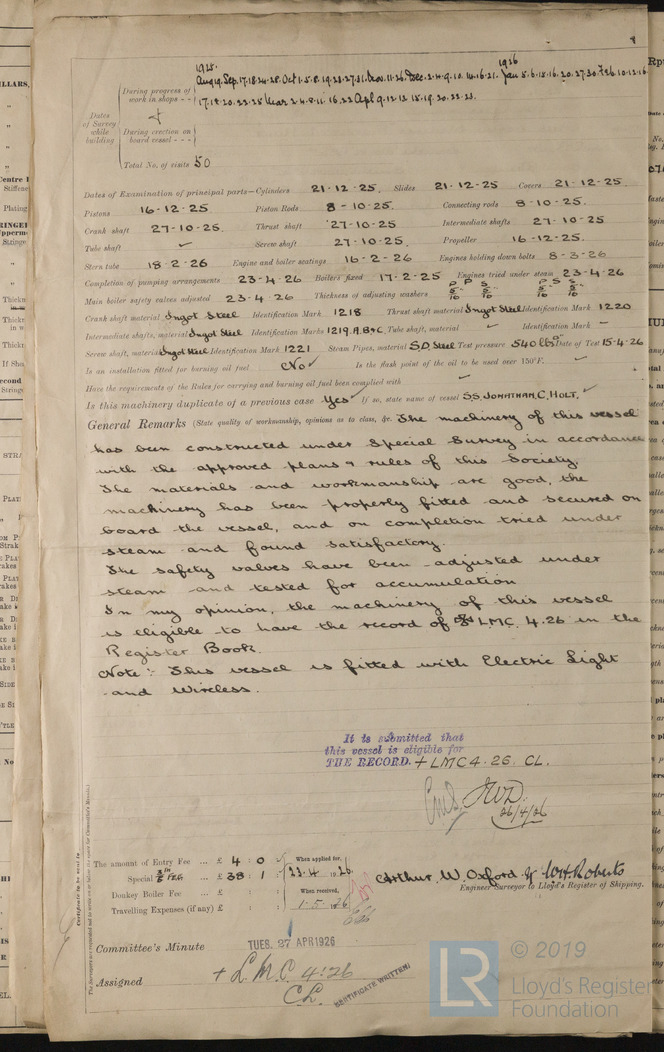 1925. 1926
During progress of
work in shops - -
Aug 19. Sep. 17.18.24.28. Oct 1.5.8.19.23.27.31. Nov. 11.26. Dec. 2.4.9.10.14.16.21. Jan 5.6.15.16.20.27.30. Feb. 10.12.16.
17.18.20.22.25 Mar 2.4.8.11.16.22 Apl 9.12.13.15.19.20.22.23.
Dates
of Survey
while
building
During erection on
board vessel - - -
Total No. of visits 50
Dates of Examination of principal parts—Cylinders 21-12-25. Slides 21-12-25. Covers 21-12-25.
Pistons 16-12-25 Piston Rods 8-10-25. Connecting rods 8-10-25.
Crank shaft 27-10-25. Thrust shaft 27-10-25. Intermediate shafts 27-10-25
Tube shaft ✓ Screw shaft 27-10-25. Propeller 16-12-25.
Stern tube 18-2-26 Engine and boiler seatings 16-2-26 Engines holding down bolts 8-3-26
Completion of pumping arrangements 23-4-26 Boilers fixed 17-2-25 Engines tried under steam 23-4-26
Main boiler safety valves adjusted 23-4-26 Thickness of adjusting washers P S P S
Crank shaft material Ingot Steel Identification Mark 1218 Thrust shaft material Ingot Steel Identification Mark 1220
Intermediate shafts, material Ingot Steel Identification Marks 1219.A.B&C. Tube shaft, material ✓ Identification Mark –
Screw shaft, material Ingot Steel Identification Mark 1221 Steam Pipes, material S.D. Steel Test pressure 540 lbs Date of Test 15-4-26
Is an installation fitted for burning oil fuel No ✓ Is the flash point of the oil to be used over 150°F. ✓
Have the requirements of the Rules for carrying and burning oil fuel been complied with ✓
Is this machinery duplicate of a previous case Yes ✓ If so, state name of vessel S.S. JONATHAN, C, HOLT. ✓
General Remarks (State quality of workmanship, opinions as to class, &c. The machinery of this vessel
has been constructed under Special Survey in accordance
with the approved plans & rules of this Society.
The materials and workmanship are good, the
machinery has been properly fitted and secured on
board the vessel, and on completion tried under
steam and found satisfactory.
The safety valves have been adjusted under
steam and tested for accumulation
In my opinion, the machinery of this vessel
is eligible to have the record of + LMC. 4.26 in the
Register Book.
Note:- This vessel is fitted with Electric Light
and Wireless.
It is submitted that
this vessel is eligible for
THE RECORD. + LMC 4.26. CL.
26/4/26
The amount of Entry Fee ... £ 4 : 0 :
Special ... £ 38 : 1 :
Donkey Boiler Fee ... £ : :
Travelling Expenses (if any) £ : :
When applied for,
23.4.1926.
When received,
1.5.1926
Arthur. W. Oxford. & W.H. Roberts
Engineer Surveyor to Lloyd's Register of Shipping.
Committee's Minute TUES. 27 APR 1926
Assigned + L.M.C. 4.26
C.L.
CERTIFICATE WRITTEN
LR
© 2019
Lloyd's Register
Foundation